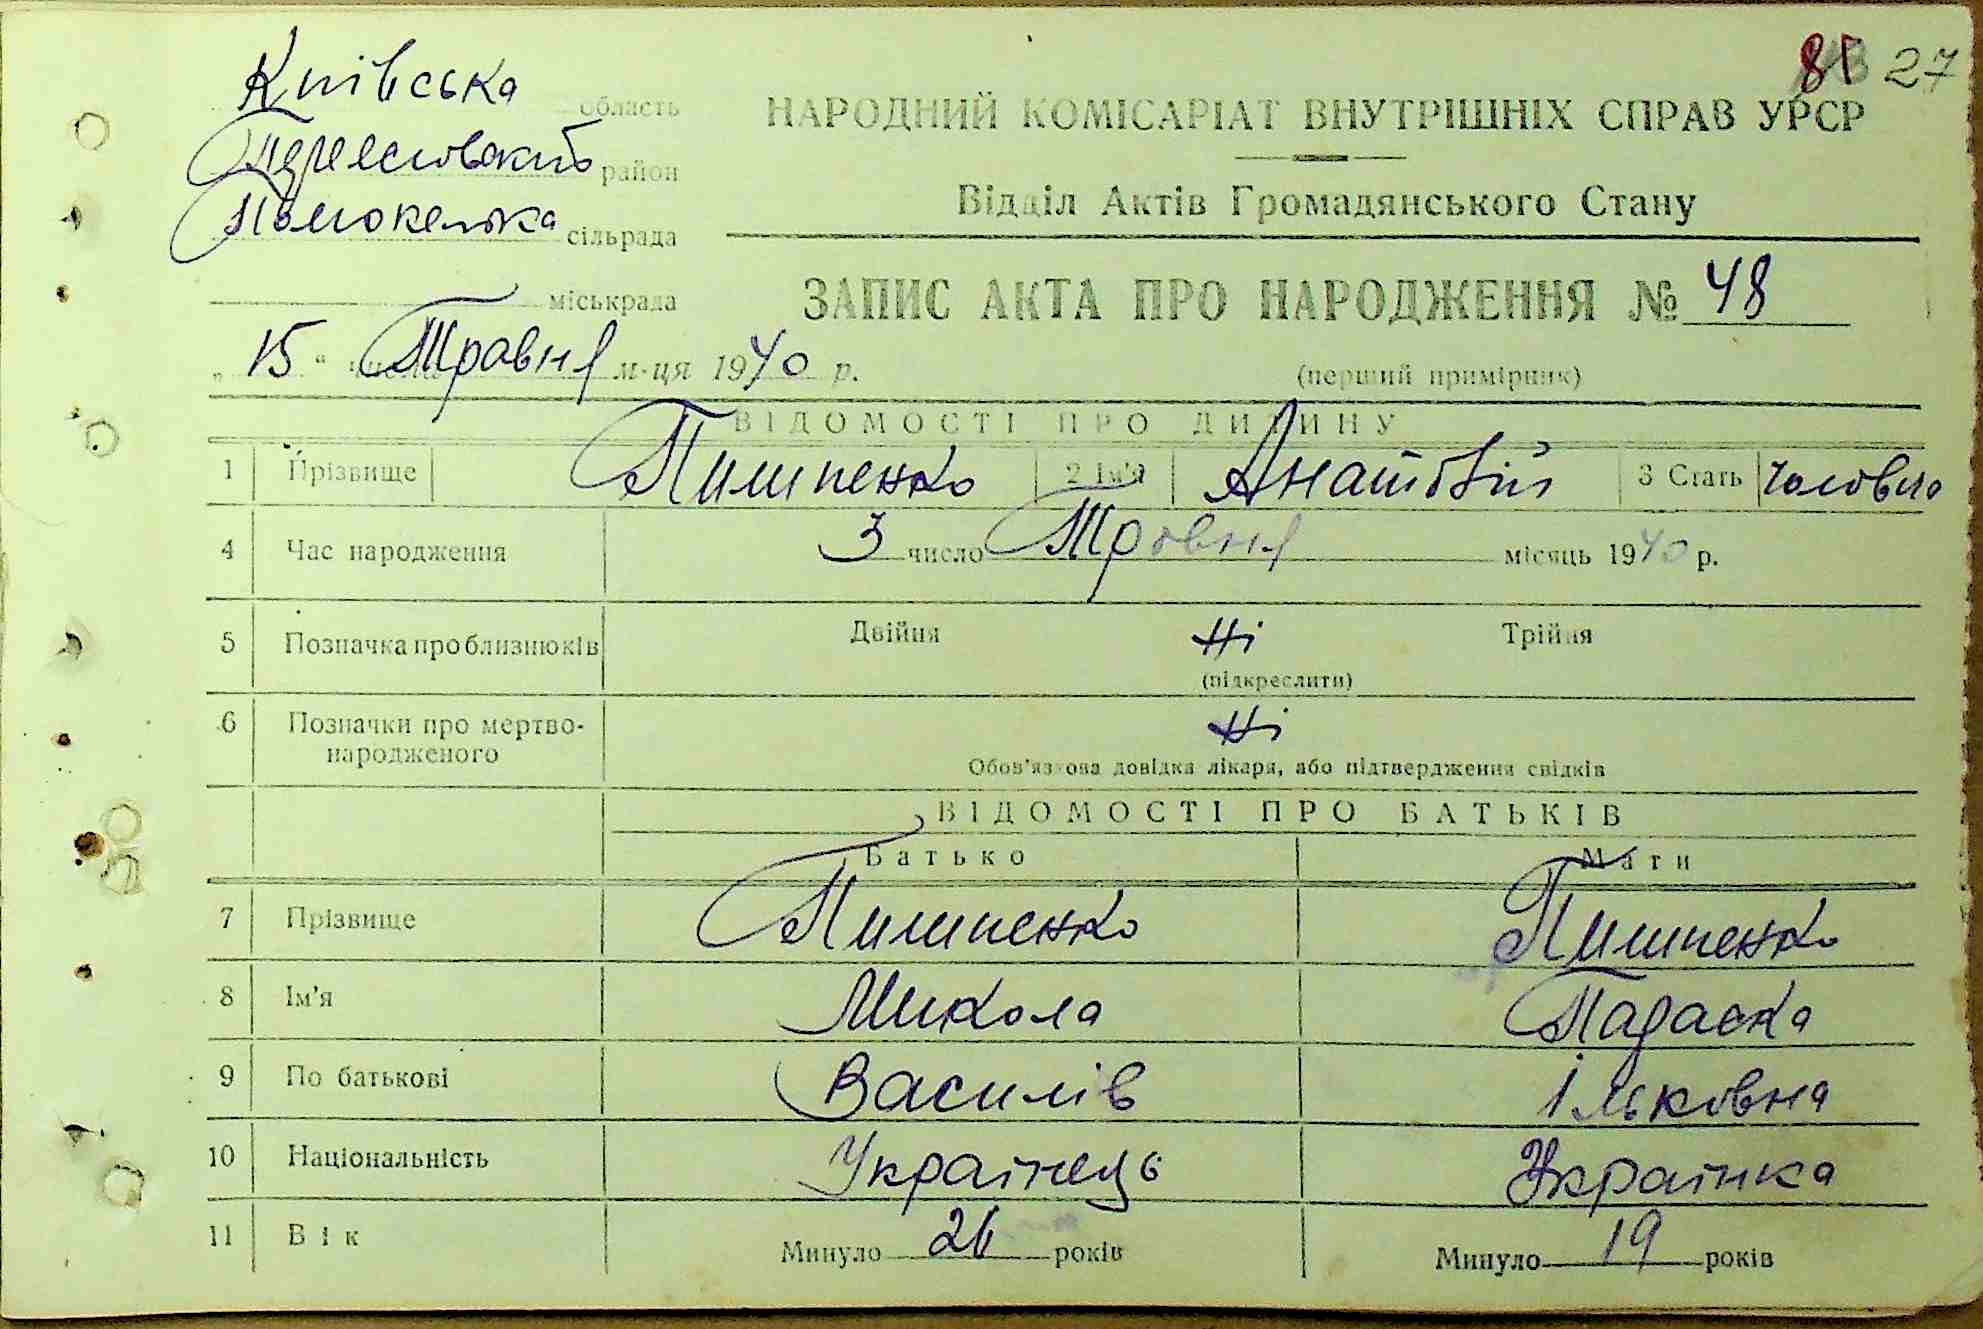 81 27
Київська область
район
сільрада
міськрада
НАРОДНИЙ КОМІСАРІАТ ВНУТРІШНІХ СПРАВ УРСР
Відділ Актів Громадянського Стану
ЗАПИС АКТА ПРО НАРОДЖЕННЯ № 48
„15“ числа Травня м-ця 1940 р.
(перший примірник)
ВІДОМОСТІ ПРО ДИТИНУ
1 Прізвище Пилипенко 2 Ім'я Анатолій 3 Стать
4 Час народження 3 число Травня місяць 1940 р.
5 Позначка про близнюків Двійня Ні Трійня
(підкреслити)
6 Позначки про мертво-
народженого Ні
Обов'язкова довідка лікаря, або підтвердження свідків
ВІДОМОСТІ ПРО БАТЬКІВ
Батько Мати
7 Прізвище Пилипенко Пилипенко
8 Ім'я Микола Параска
9 По батькові Василів Ільковна
10 Національність Українець Українка
11 Вік Минуло 26 років Минуло 19 років